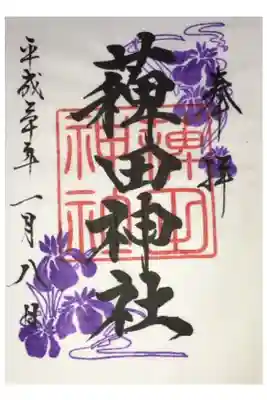 奉拝
薭田神社
薭田
神社
平成三十年 一月八日